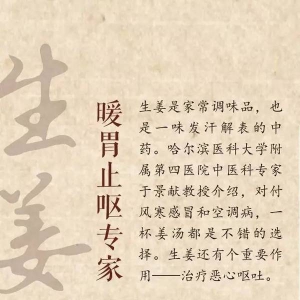 生姜
暖胃止呕专家
生姜是家常调味品，也
是一味发汗解表的中
药。哈尔滨医科大学附
属第四医院中医科专家
于景献教授介绍，对付
风寒感冒和空调病，一
杯姜汤都是不错的选
择。生姜还有个重要作
用——治疗恶心呕吐。